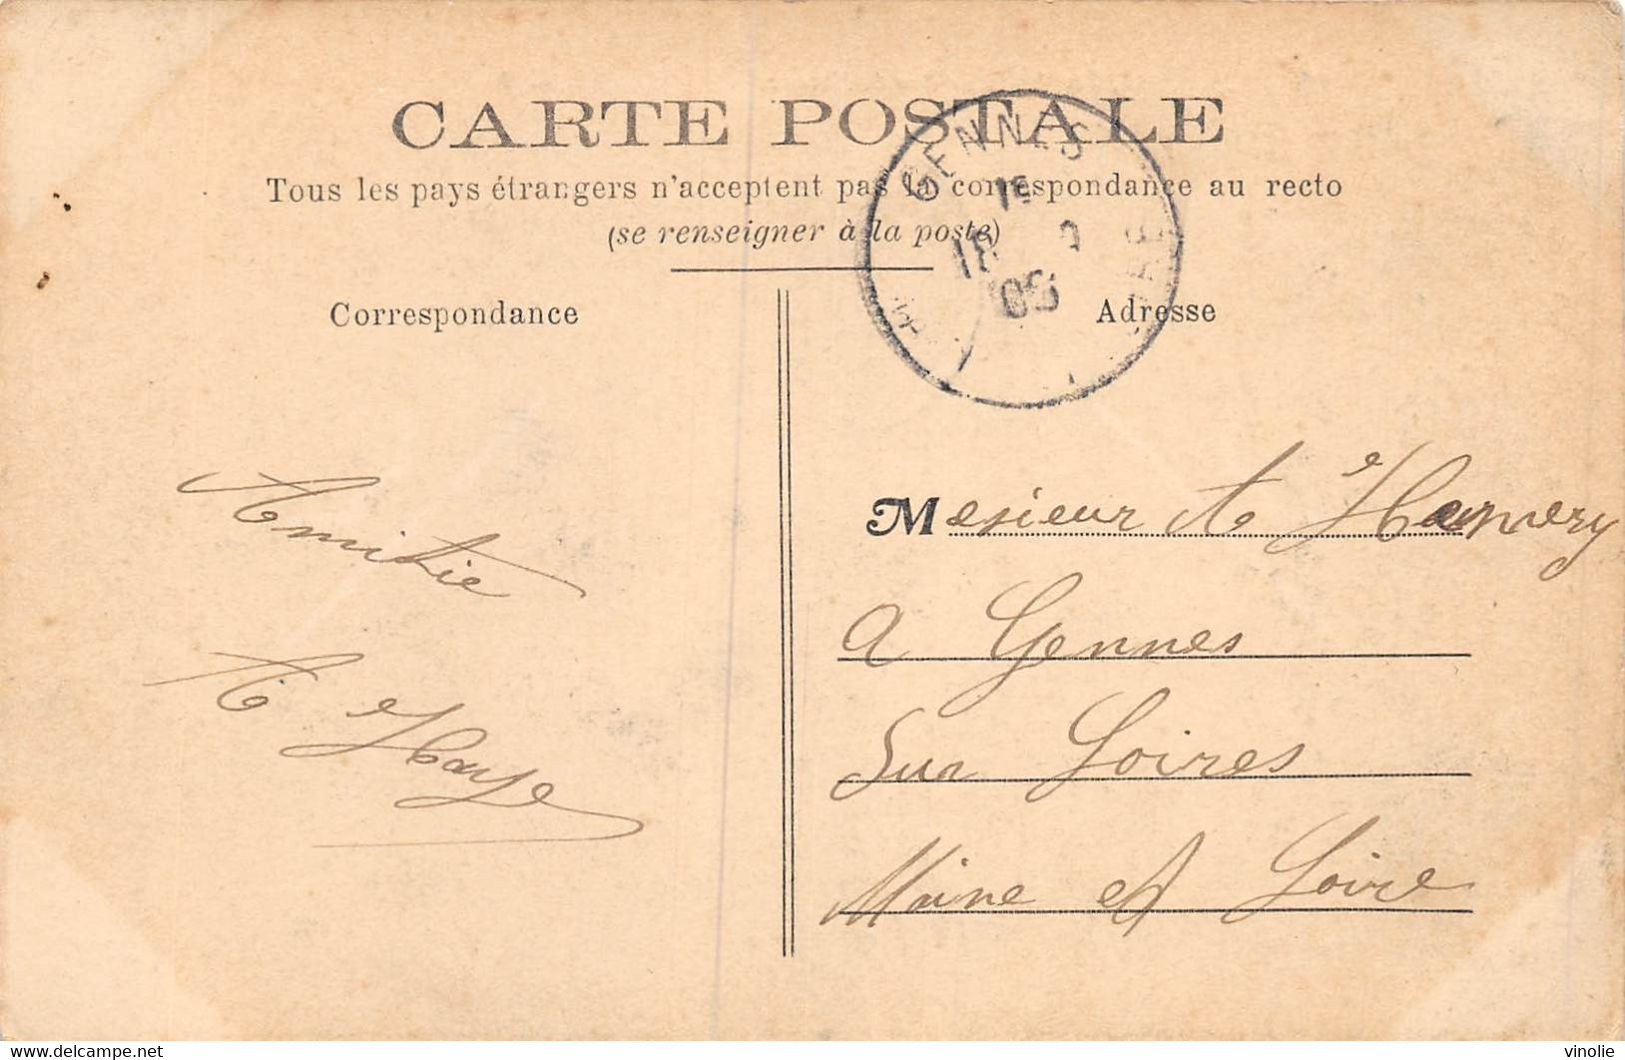 CARTE POSTALE
Tous les pays étrangers n'acceptent pas la correspondance au recto
(se renseigner à la poste)
GENNES
09
Correspondance
Adresse
Amitie
A
Mesieur A
a Gennes
Sur Loires
Maine et Loire
www.delcampe.net
vinolie